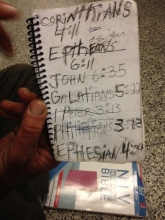 CORINTHIANS
4:11
EPHEANS
6:11
JOHN 6:35
GALATIANS 5:22
1 PETER 3:13
3:13
EPHESIAN 4:
NIV
BIBLE